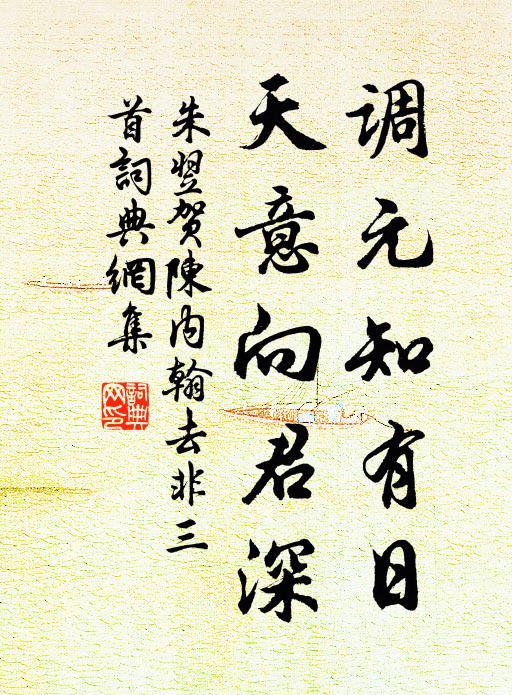 调元知有日
天意向君深
朱翌贺陳内翰去非三
首詞典網集
詞典
网印